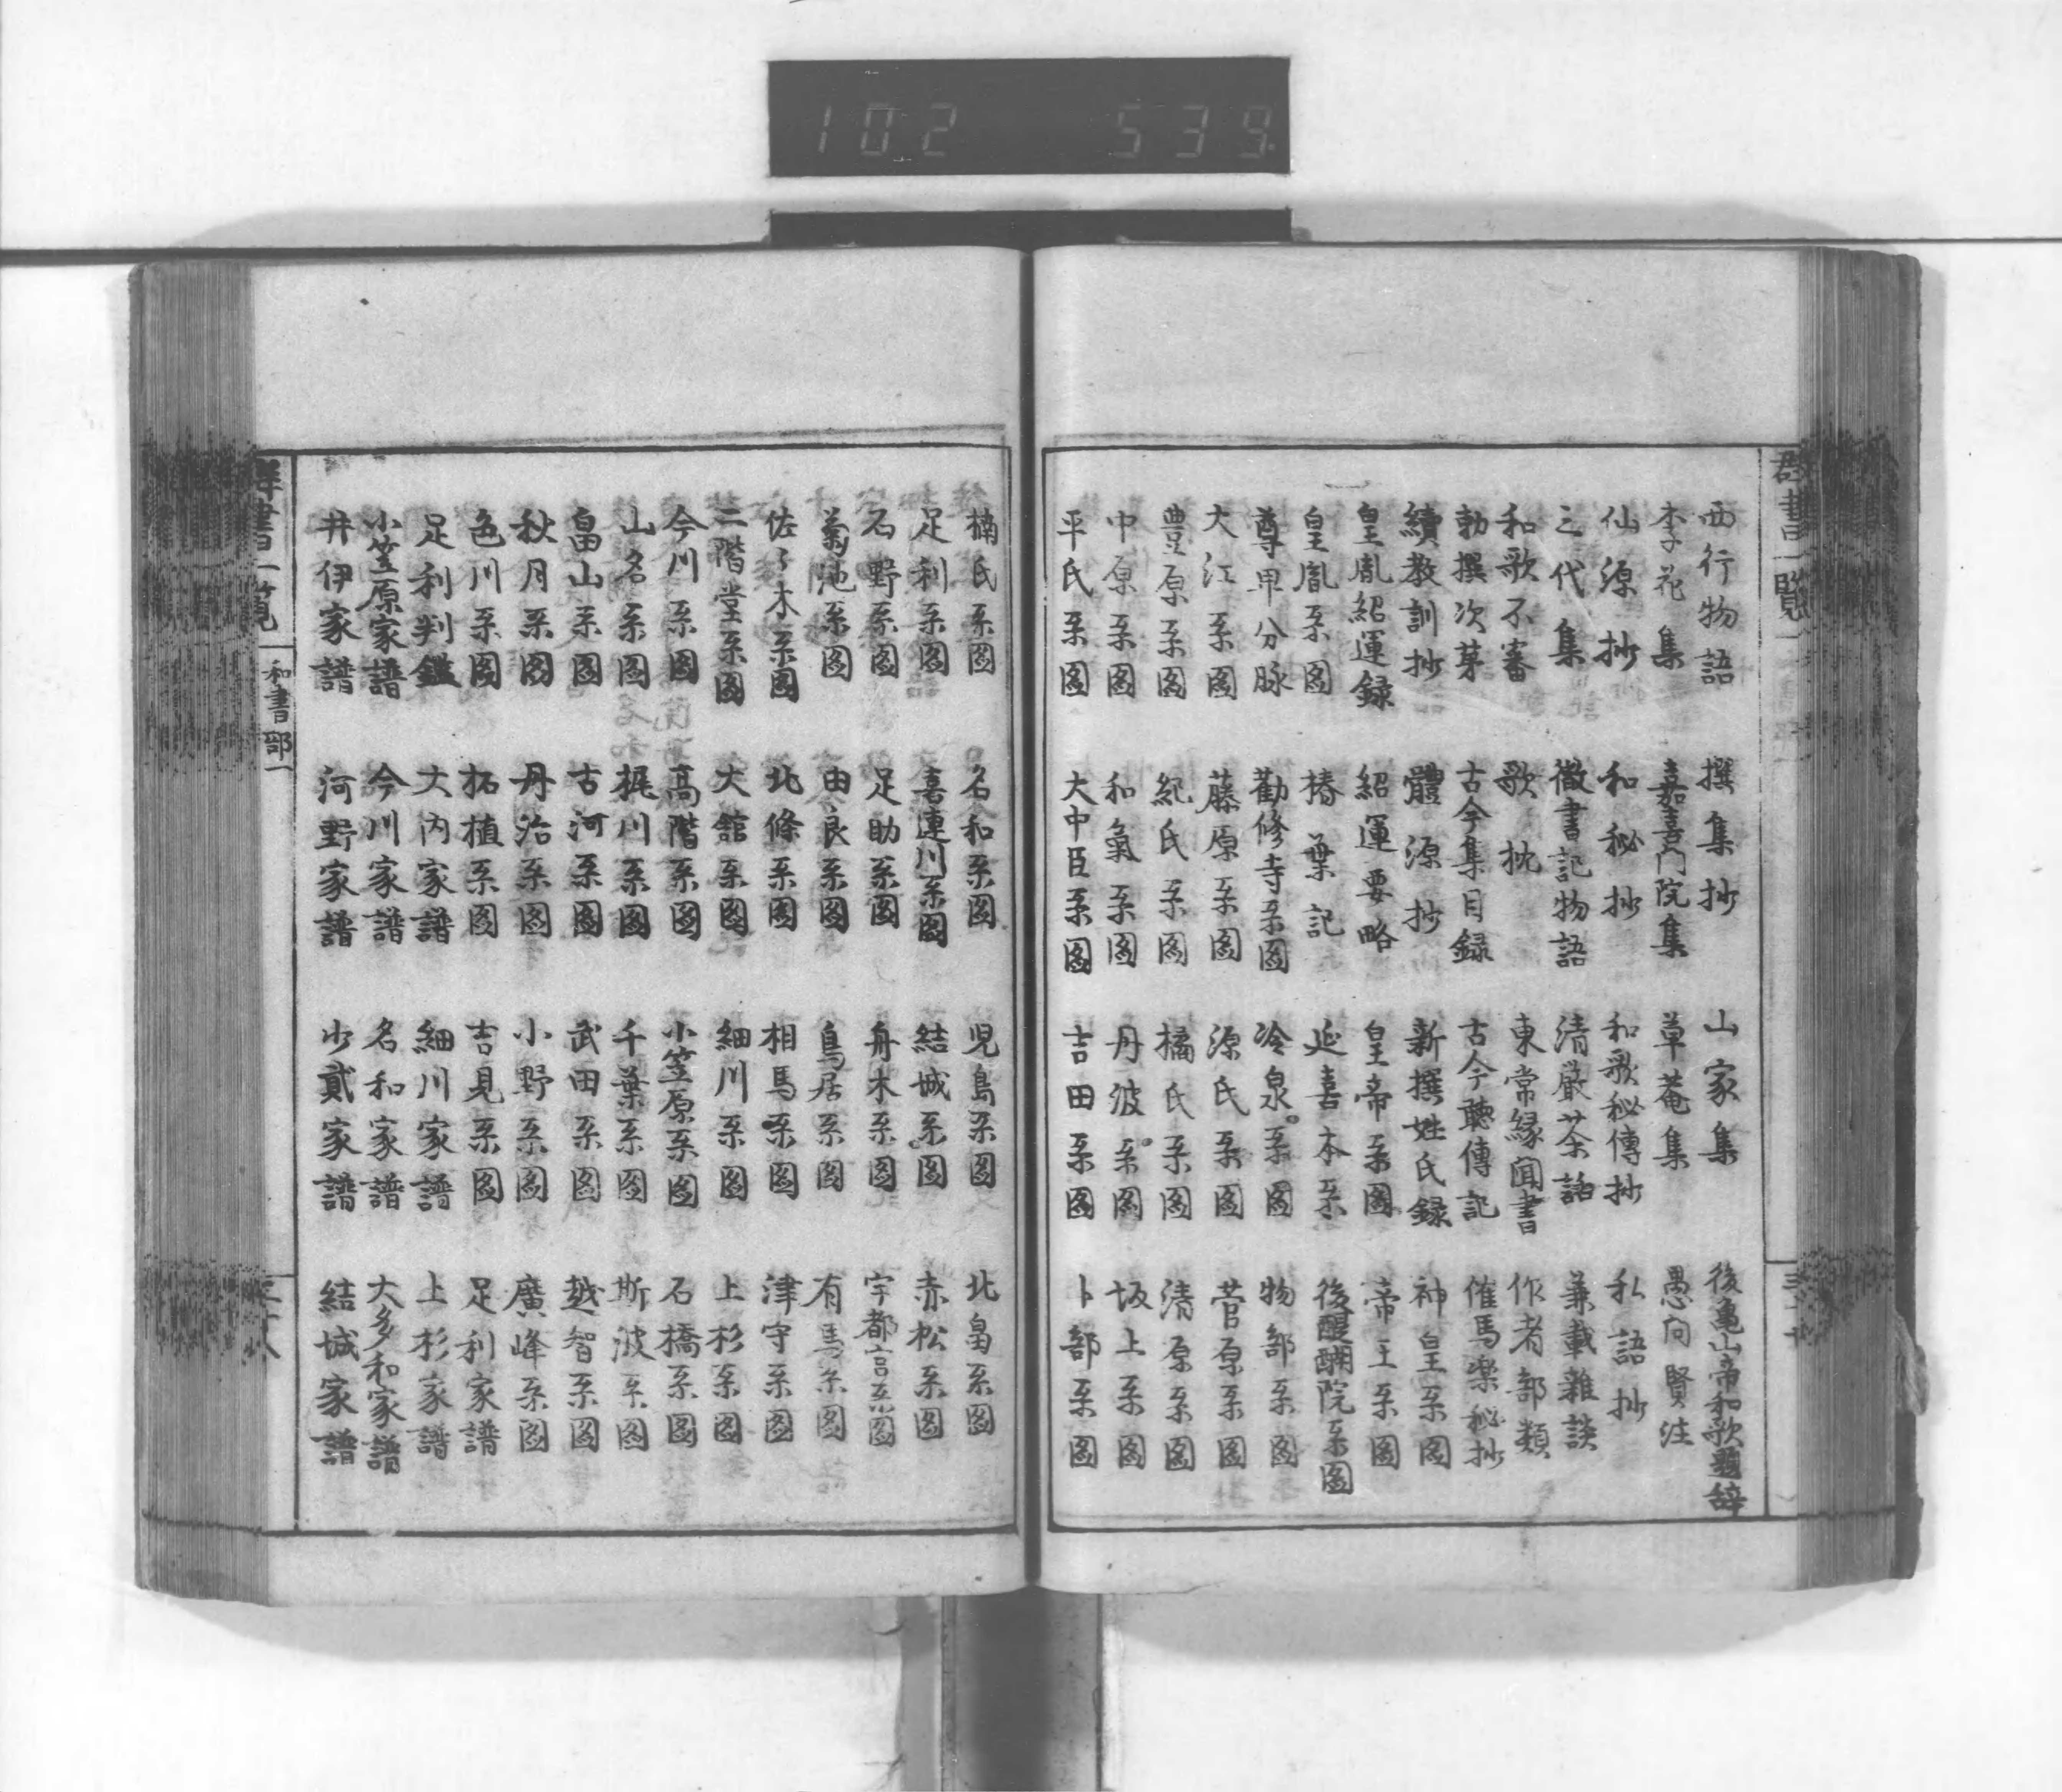 102 539
群書一覧
西行物語 撰集抄 山家集 後亀山帝和歌題辞
李花集 嘉喜門院集 草菴集 愚問賢注
仙源抄 和秘抄 和歌秘傳抄 私語抄
三代集 徹書記物語 清嚴茶話 兼載雜談
和歌不審 歌枕 東常縁聞書 作者部類
勅撰次第 古今集目録 古今聽傳記 催馬楽秘抄
續教訓抄 體源抄 新撰姓氏録 神皇系圖
皇胤紹運録 紹運要略 皇帝系圖 帝王系圖
皇胤系圖 椿葉記 延喜本系 後醍醐院系圖
尊卑分脉 勸修寺系圖 冷泉系圖 物部系圖
大江系圖 藤原系圖 源氏系圖 菅原系圖
豊原系圖 紀氏系圖 橘氏系圖 清原系圖
中原系圖 和氣系圖 丹波系圖 坂上系圖
平氏系圖 大中臣系圖 吉田系圖 卜部系圖
楠氏系圖 名和系圖 児島系圖 北畠系圖
足利系圖 喜連川系圖 結城系圖 赤松系圖
石野系圖 足助系圖 舟木系圖 宇都宮系圖
菊池系圖 由良系圖 鳥居系圖 有馬系圖
佐々木系圖 北條系圖 相馬系圖 津守系圖
二階堂系圖 大舘系圖 細川系圖 上杉系圖
今川系圖 高階系圖 小笠原系圖 石橋系圖
山名系圖 梶川系圖 千葉系圖 斯波系圖
畠山系圖 古河系圖 武田系圖 越智系圖
秋月系圖 丹治系圖 小野系圖 廣峰系圖
色川系圖 拓植系圖 吉見系圖 足利家譜
足利判鑑 大内家譜 細川家譜 上杉家譜
小笠原家譜 今川家譜 名和家譜 大多和家譜
井伊家譜 河野家譜 少貳家譜 結城家譜
群書一覧 和書部一